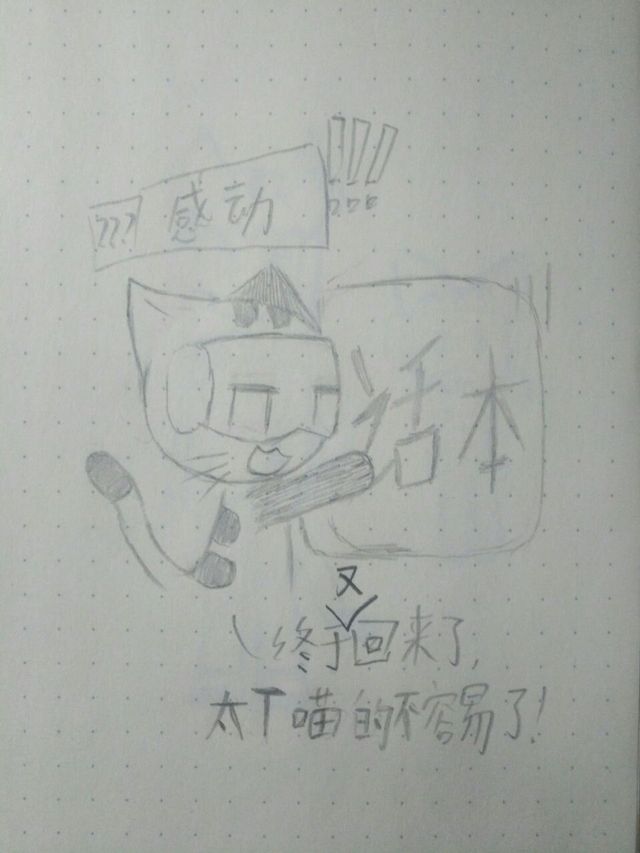 !!!
??? 感动
话本
终于又回来了,
太丅喵的不容易了!